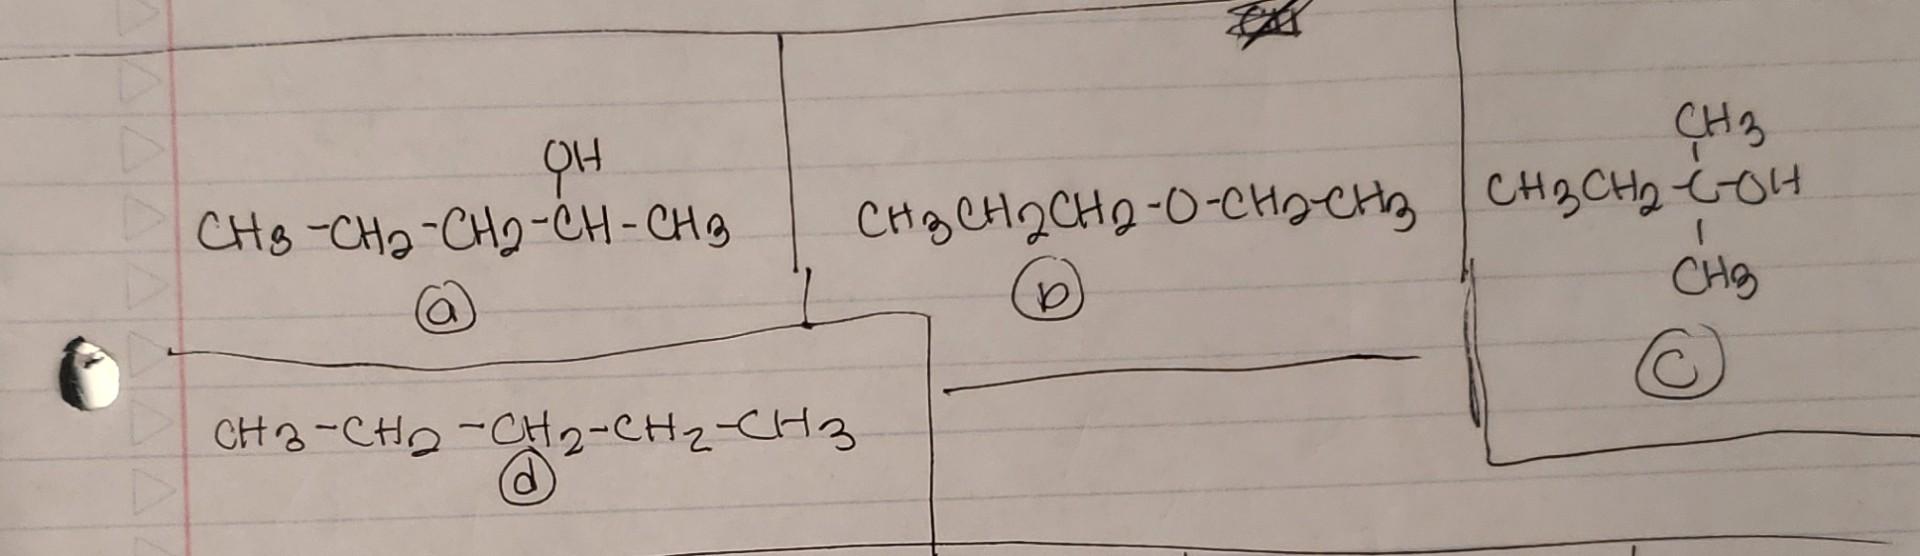 OH
CH3-CH2-CH2-CH-CH3
a
CH3CH2CH2-O-CH2-CH3
b
CH3
CH3CH2-C-OH
CH3
c
CH3-CH2-CH2-CH2-CH3
d